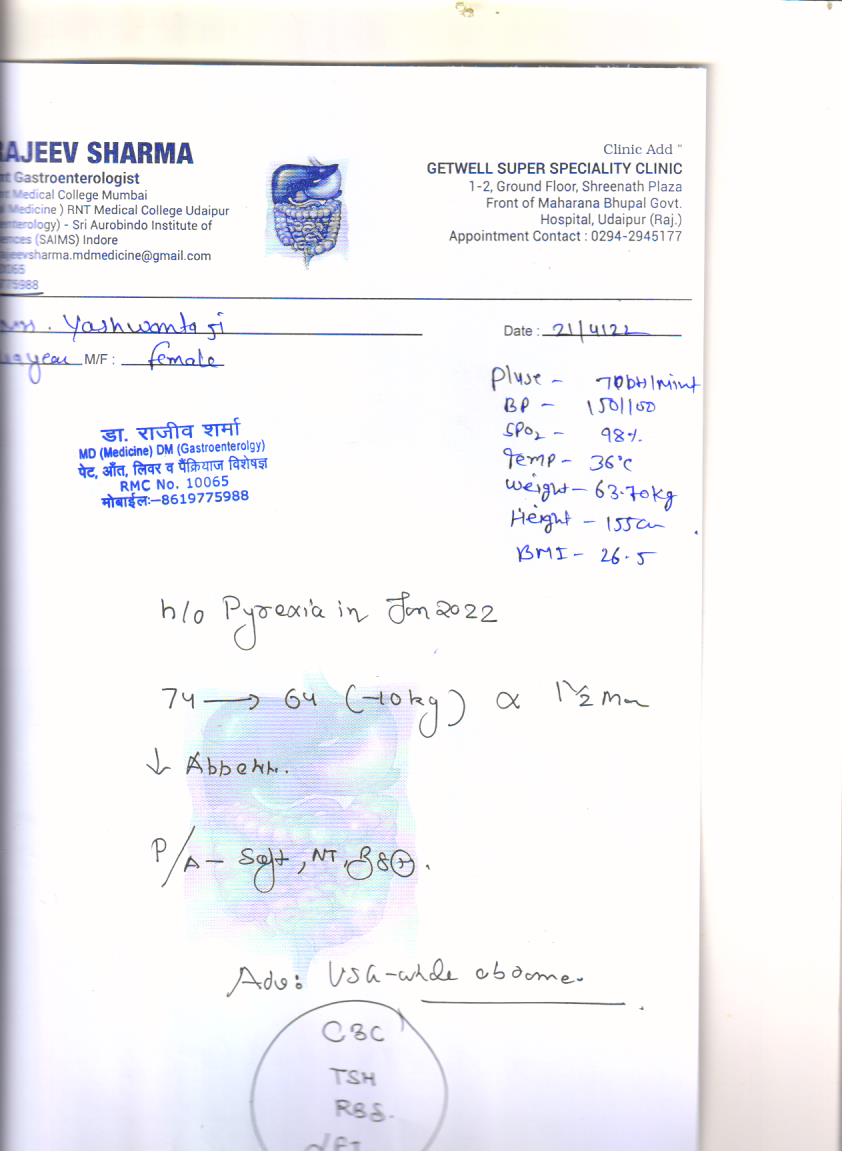 RAJEEV SHARMA
nt Gastroenterologist
nt Medical College Mumbai
Medicine ) RNT Medical College Udaipur
enterology) - Sri Aurobindo Institute of
ences (SAIMS) Indore
ajeevsharma.mdmedicine@gmail.com
0065
775988
Clinic Add "
GETWELL SUPER SPECIALITY CLINIC
1-2, Ground Floor, Shreenath Plaza
Front of Maharana Bhupal Govt.
Hospital, Udaipur (Raj.)
Appointment Contact : 0294-2945177
Yashwanta ji
Date : 21/4/22
year M/F : female
डा. राजीव शर्मा
MD (Medicine) DM (Gastroenterolgy)
पेट, आँत, लिवर व पैंक्रियाज विशेषज्ञ
RMC No. 10065
मोबाईलः-8619775988
Pluse - 70bt/mint
BP - 150/100
SPO2 - 98%
Temp - 36°c
Weight - 63.70kg
Height - 155cm
BMI - 26.5
h/o Pyrexia in Jan 2022
74 → 64 (-10kg) ∝ 1½
↓ Appetit.
P/A - Soft, NT, BS⊕.
Adv: USG-whole abdome.
CBC
TSH
RBS.